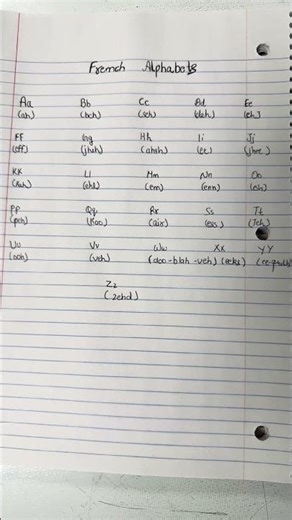 French Alphabets
Aa Bb Cc Dd Ee
(ah) (beh) (seh) (deh) (eh)
FF Gg Hh Ii Jj
(eff) (jheh) (ahsh) (ee)
KK Ll Mm Nn Oo
(kah) (ehl) (em) (enn) (oh)
PP Qq Rr Ss Tt
(peh) (koo) (air) (ess) (Teh)
Uu Vv Ww XX YY
(ooh) (veh) (doo-blah-veh) (eeks)
Zz
(zehd)